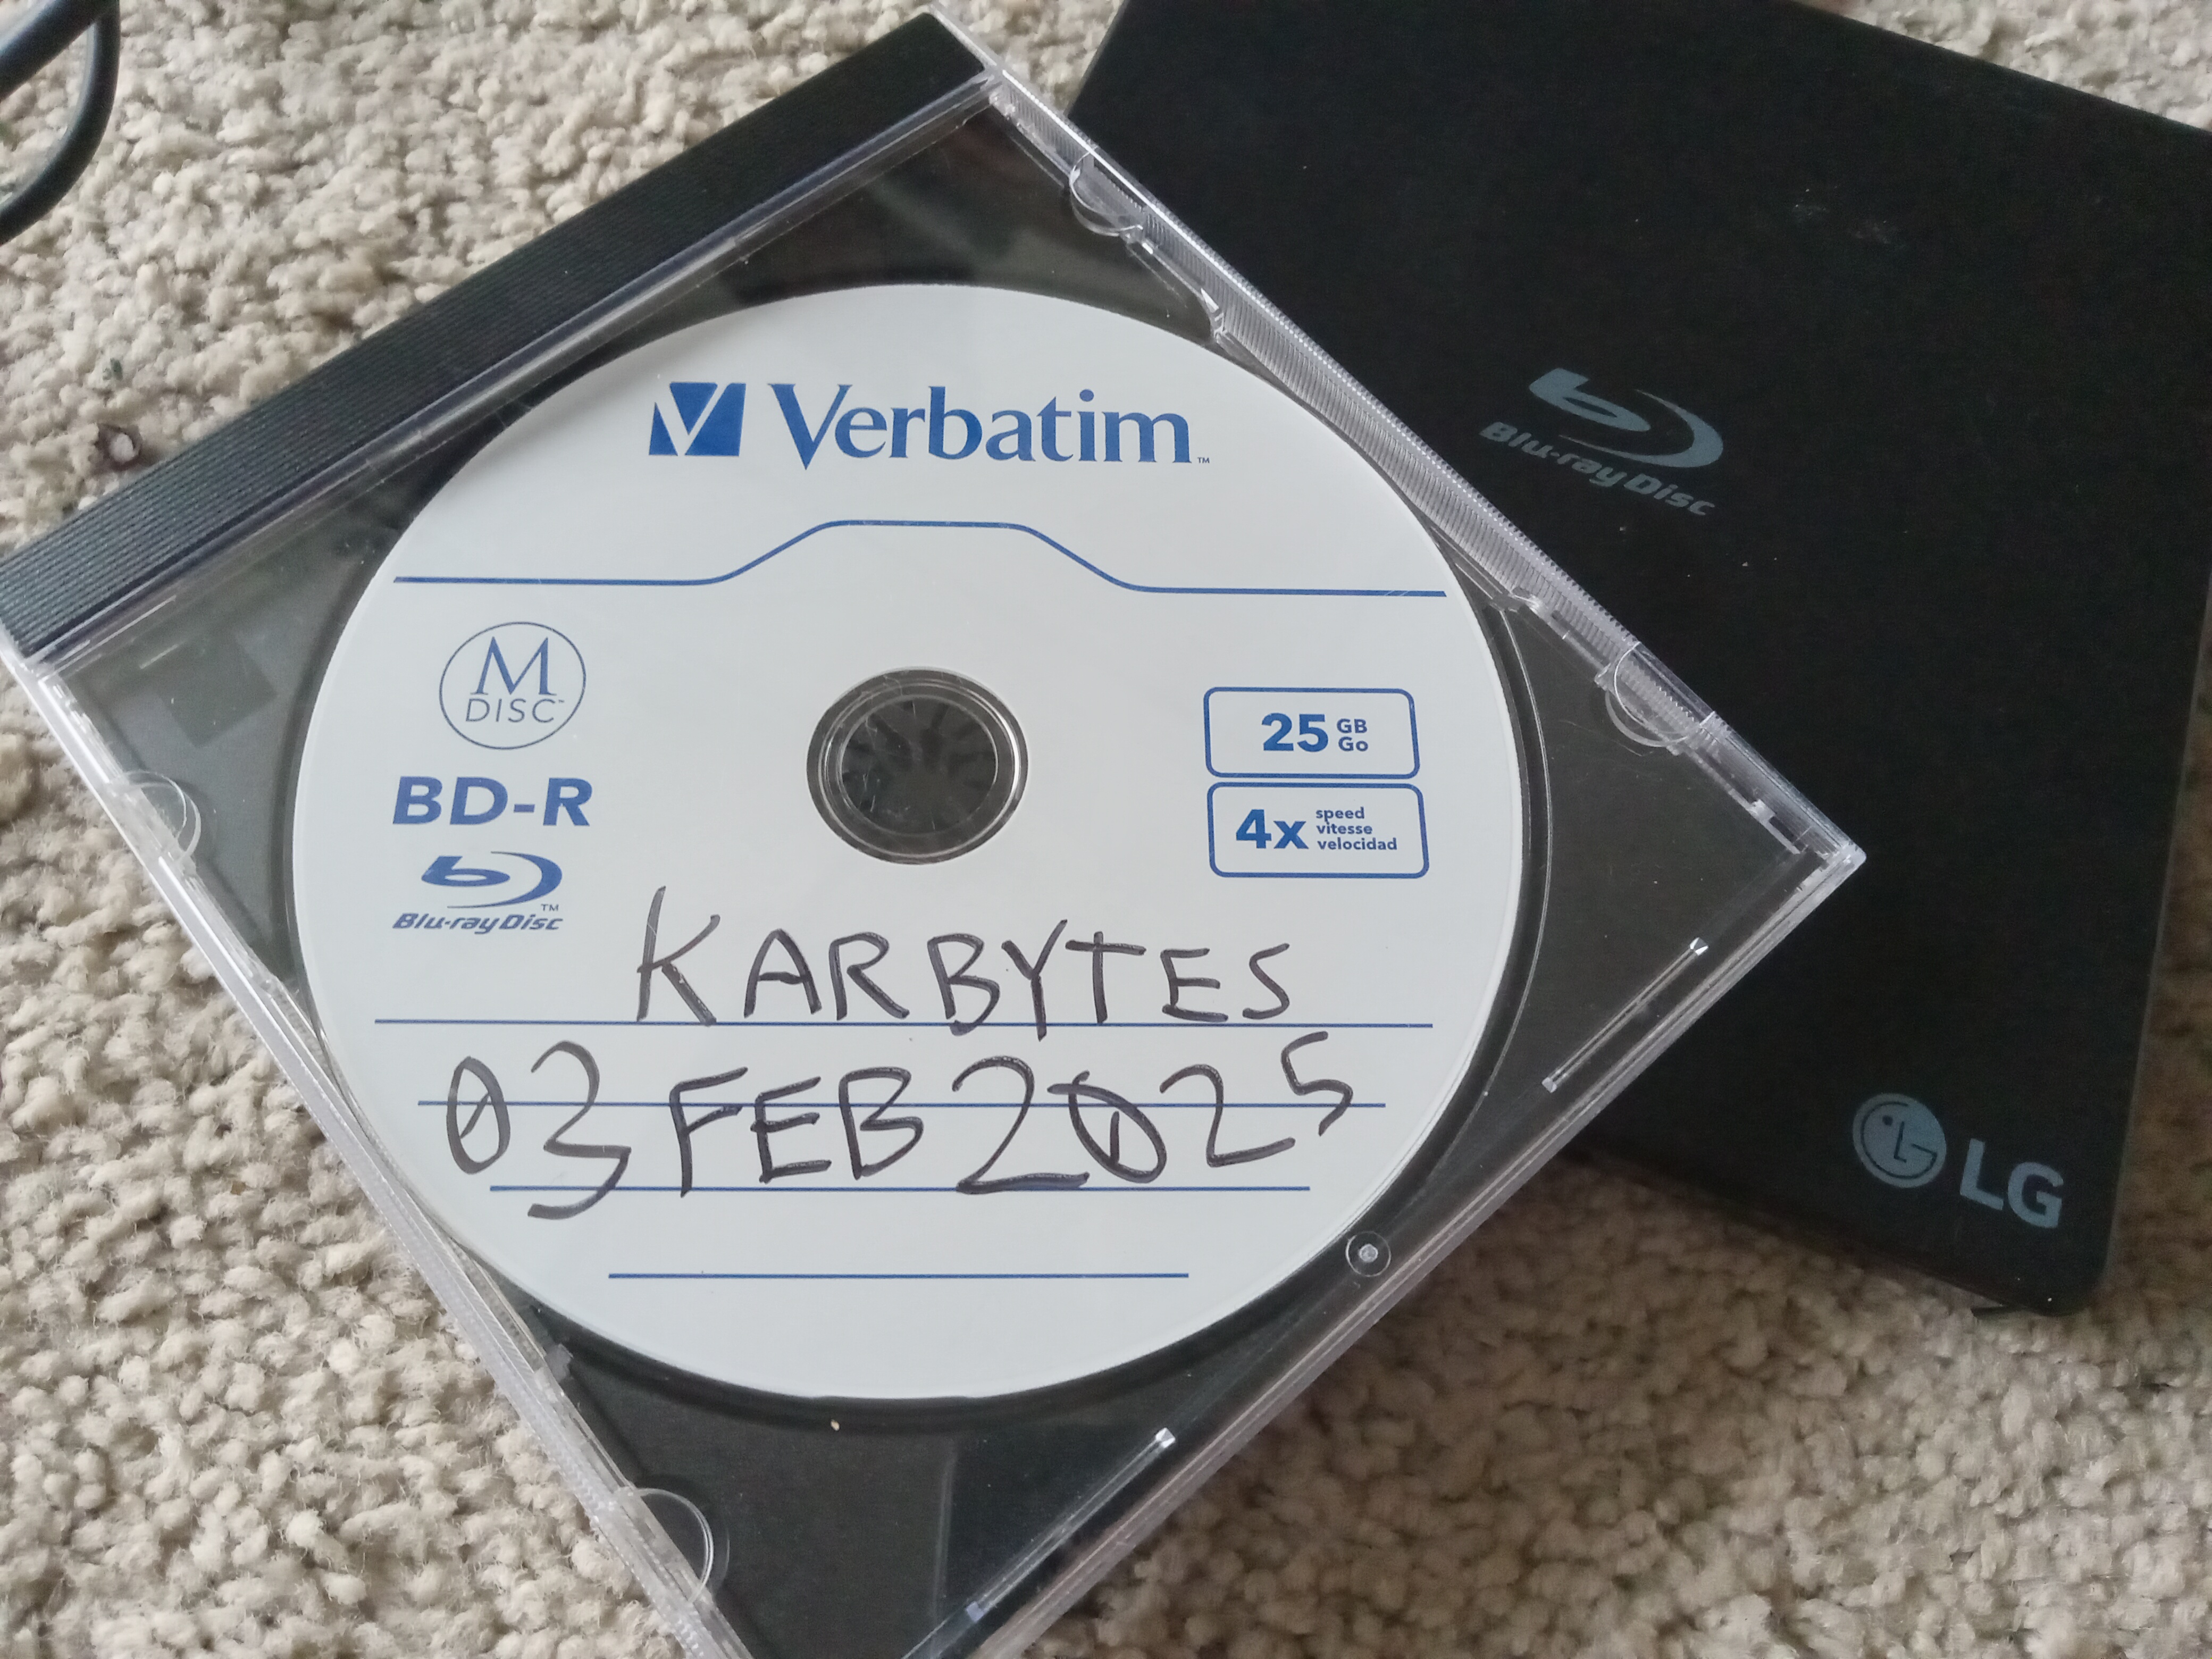 Verbatim™
M
DISC™
BD-R
Blu-ray Disc™
25 GB
Go
4x speed
vitesse
velocidad
KARBYTES
03 FEB 2025
Blu-ray Disc
LG